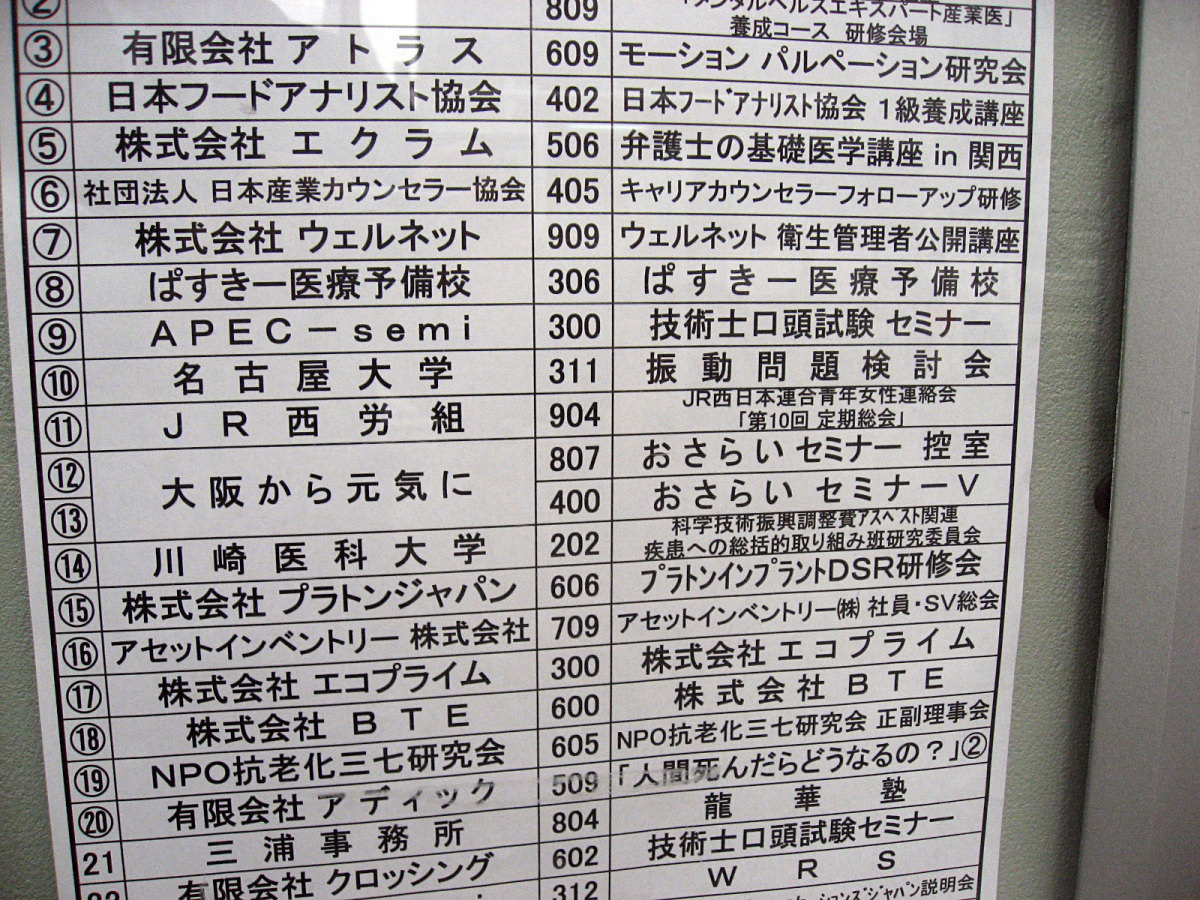 ② 809 「メンタルヘルスエキスパート産業医」
養成コース 研修会場
③ 有限会社 アトラス 609 モーション パルペーション研究会
④ 日本フードアナリスト協会 402 日本フードアナリスト協会 1級養成講座
⑤ 株式会社 エクラム 506 弁護士の基礎医学講座 in 関西
⑥ 社団法人 日本産業カウンセラー協会 405 キャリアカウンセラーフォローアップ研修
⑦ 株式会社 ウェルネット 909 ウェルネット 衛生管理者公開講座
⑧ ぱすきー医療予備校 306 ぱすきー医療予備校
⑨ APEC－semi 300 技術士口頭試験 セミナー
⑩ 名古屋大学 311 振動問題検討会
⑪ JR西労組 904 JR西日本連合青年女性連絡会
「第10回 定期総会」
⑫ 大阪から元気に 807 おさらい セミナー 控室
⑬ 400 おさらい セミナーV
⑭ 川崎医科大学 202 科学技術振興調整費アスベスト関連
疾患への総括的取り組み班研究委員会
⑮ 株式会社 プラトンジャパン 606 プラトンインプラントDSR研修会
⑯ アセットインベントリー 株式会社 709 アセットインベントリー㈱ 社員・SV総会
⑰ 株式会社 エコプライム 300 株式会社 エコプライム
⑱ 株式会社 BTE 600 株式会社 BTE
⑲ NPO抗老化三七研究会 605 NPO抗老化三七研究会 正副理事会
⑳ 有限会社 アディック 509 「人間死んだらどうなるの？」②
21 三浦事務所 804 龍華塾
22 有限会社 クロッシング 602 技術士口頭試験セミナー
312 WRS
ションズジャパン説明会